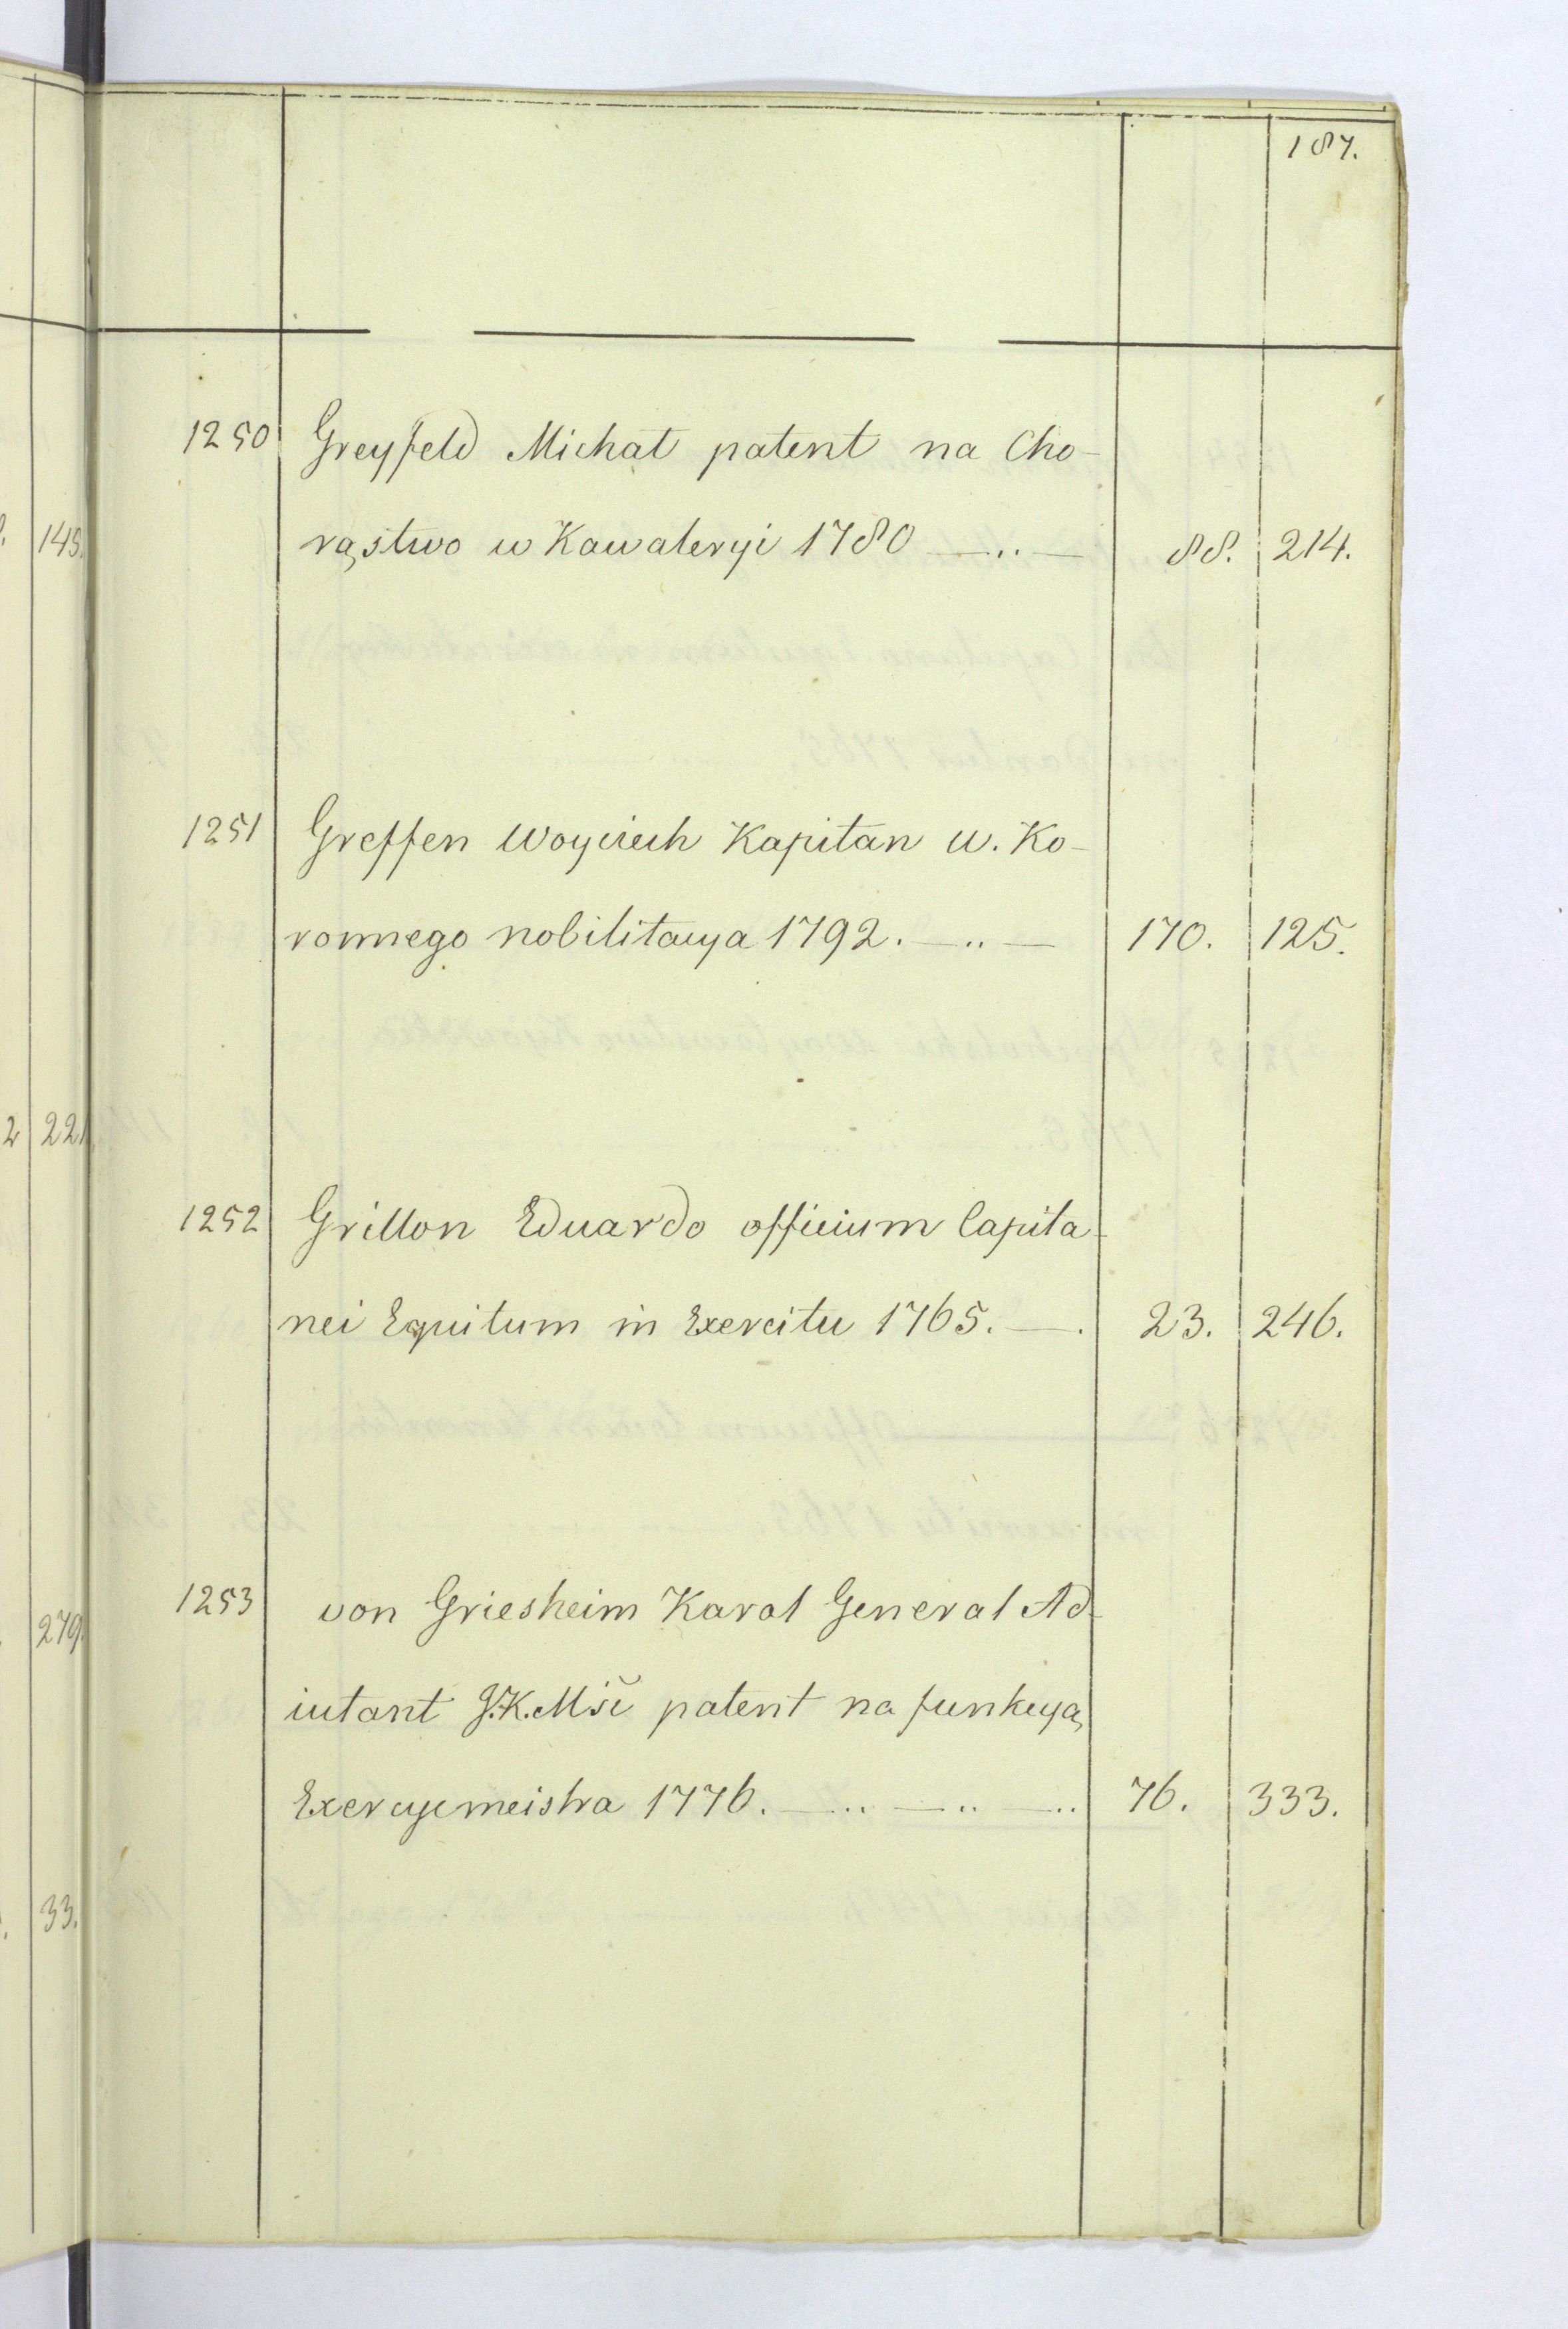 187.
1250 Greyfeld Michał patent na Cho-
rąstwo w Kawaleryi 1780 —..— 88. 214.
1251 Greffen Woyciech Kapitan W. Ko-
ronnego nobilitacya 1792. —..— 170. 125.
1252 Grillon Eduardo officium Capita-
nei Equitum in Exercitu 1765. —. 23. 246.
1253 von Griesheim Karol General Ad-
iutant J.K.Mści patent na funkcyą
Exercycmeistra 1776. —..—..—.. 76. 333.
145.
2 221
279.
33.